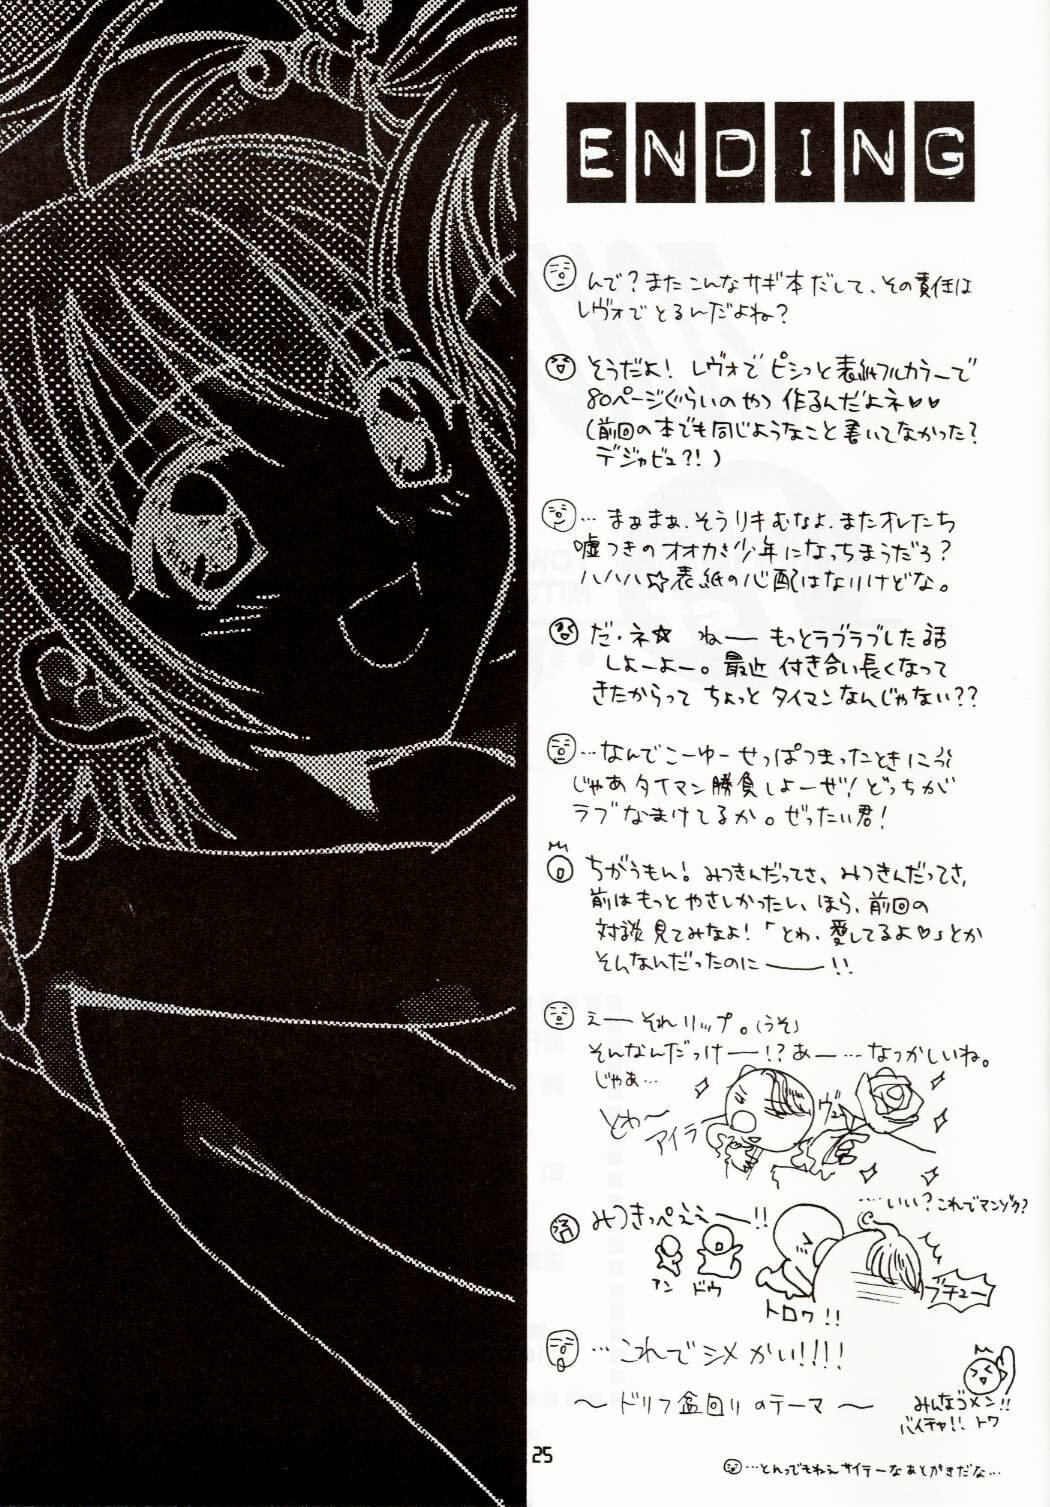 ENDING
んで?またこんなサギ本だして、その責任は
レヴォでとるんだよね?
そうだよ! レヴォでピシっと表紙フルカラーで
80ページぐらいのやつ作るんだよネ♡♡
(前回の本でも同じようなこと書いてなかった?
デジャビュ?!)
…まぁまぁ、そうリキむなよ、またオレたち
嘘つきのオオカミ少年になっちまうだろ?
ハハハ☆表紙の心配はないけどな。
だ・ネ☆ ねーもっとラブラブした話
しよーよー。最近付き合い長くなって
きたからって ちょっとタイマンなんじゃない??
…なんでこーゆーせっぱつまったときに
じゃあタイマン勝負しよーぜ!どっちが
ラブなまけてるか。ぜったい君!
ちがうもん!みつきんだってさ、みつきんだってさ、
前はもっとやさしかったし、ほら、前回の
対談見てみなよ!「とわ、愛してるよ♡」とか
そんなんだったのに――!!
えーそれリップ。(うそ)
そんなんだっけー!?あー…なつかしいね。
じゃあ…
とわ〜
アイラ
ヴュ
……いい?これでマンゾク?
みつきっぺええー!!
アン ドゥ
トロワ!!
ブチュー
…これでシメかい!!!!
〜ドリフ盆回りのテーマ〜
みんなゴメン!!
バイチャ!! トワ
25
…とんでもねえサイテーなあとがきだな…